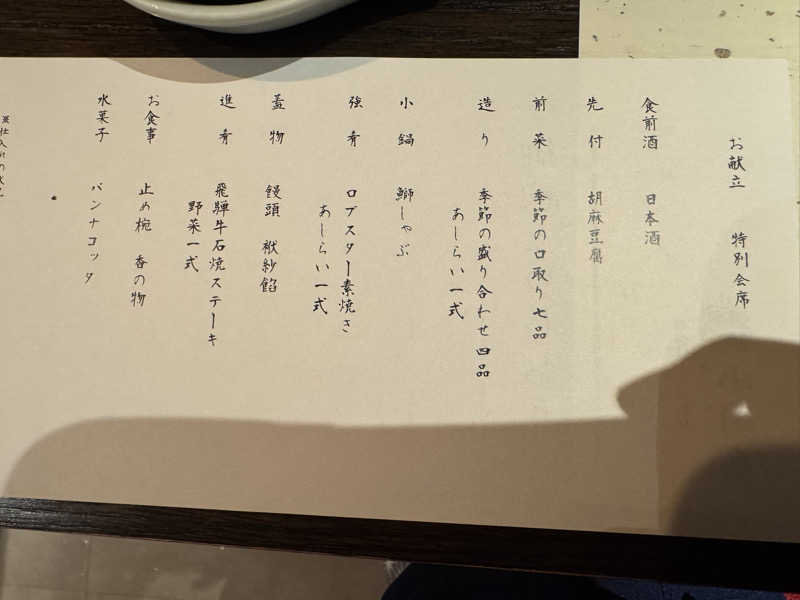 お献立 特別会席
食前酒 日本酒
先付 胡麻豆腐
前菜 季節の口取り七品
造り 季節の盛り合わせ四品
あしらい一式
小鍋 鰤しゃぶ
強肴 ロブスター素焼き
あしらい一式
蓋物 饅頭 袱紗餡
進肴 飛騨牛石焼ステーキ
野菜一式
お食事 止め椀 香の物
水菓子 パンナコッタ